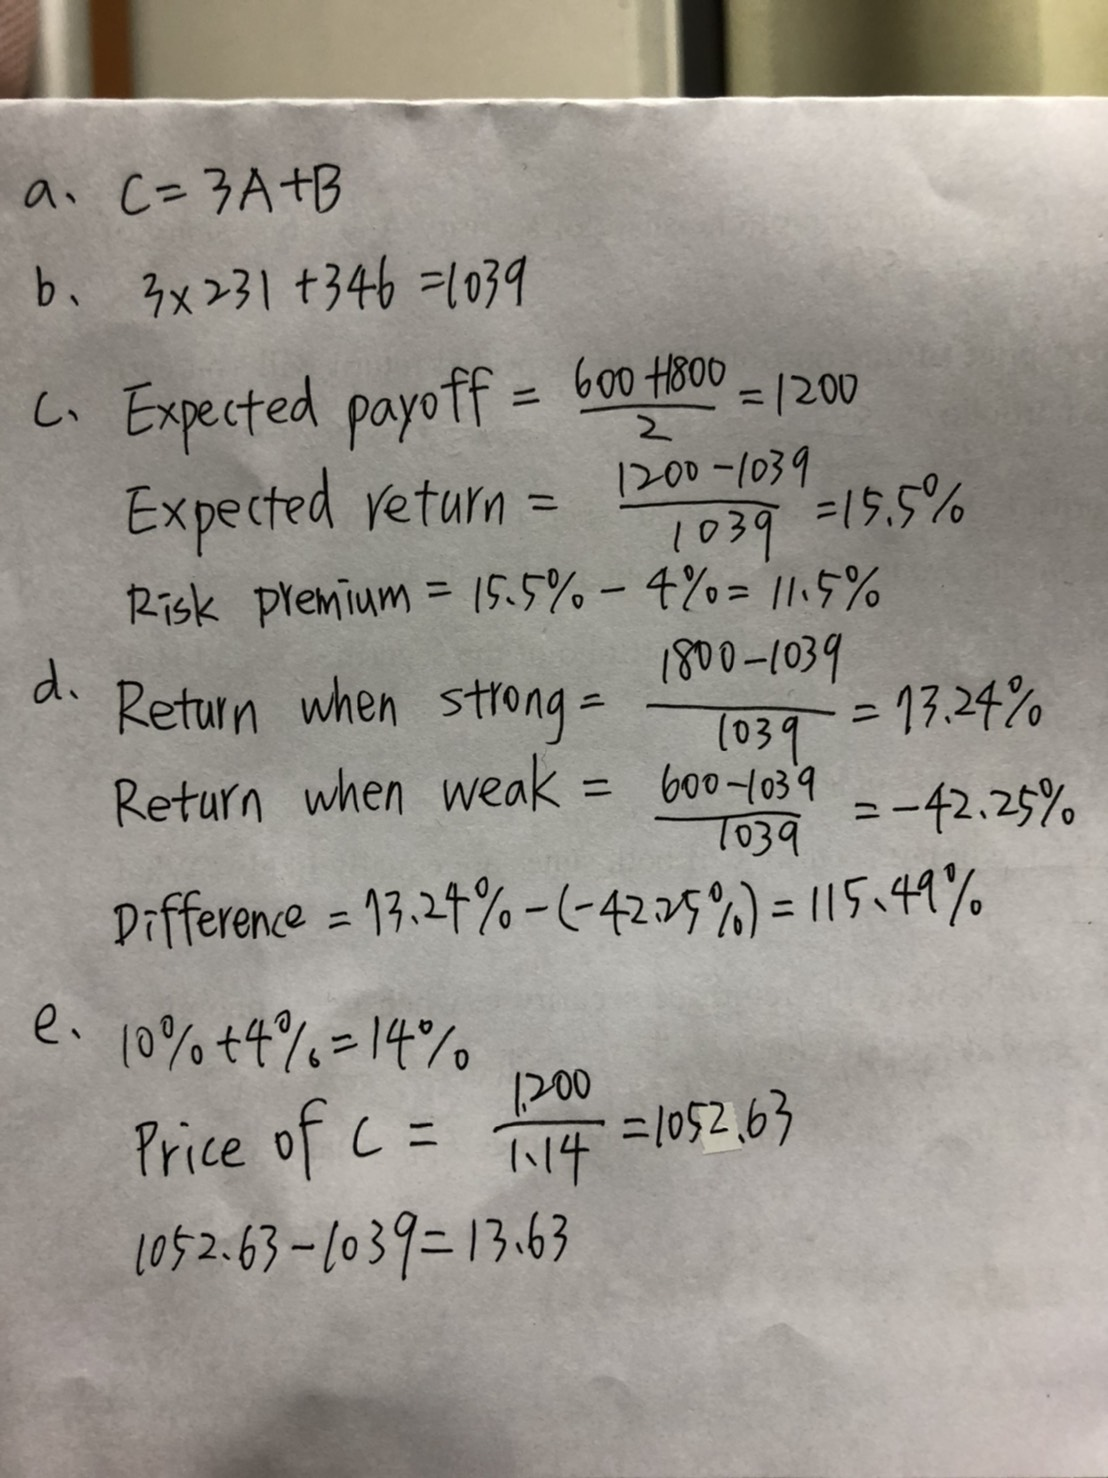 a、 C=3A+B
b、 3×231+346=1039
c、 Expected payoff = (600+1800)/2 = 1200
Expected return = (1200-1039)/1039 = 15.5%
Risk premium = 15.5% - 4% = 11.5%
d、 Return when strong = (1800-1039)/1039 = 73.24%
Return when weak = (600-1039)/1039 = -42.25%
Difference = 73.24% - (-42.25%) = 115.49%
e、 10%+4%=14%
Price of C = 1200/1.14 = 1052.63
1052.63-1039=13.63